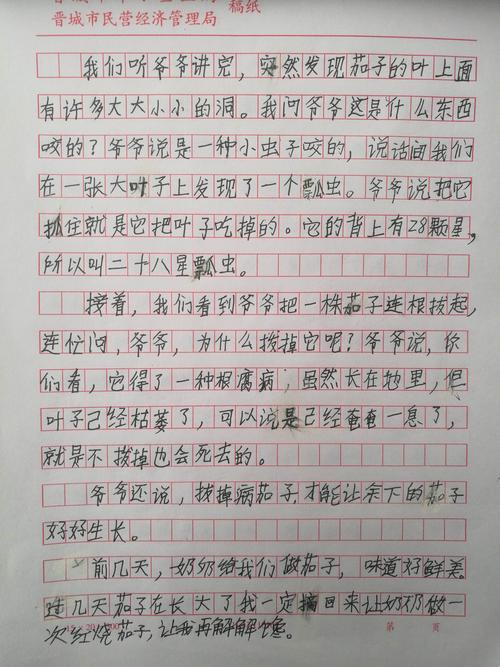 晋城市民营经济管理局 稿纸
我们听爷爷讲完，突然发现茄子的叶上面
有许多大大小小的洞。我问爷爷这是什么东西
咬的？爷爷说是一种小虫子咬的，说话间我们
在一张大叶子上发现了一个瓢虫。爷爷说把它
抓住就是它把叶子吃掉的。它的背上有28颗星，
所以叫二十八星瓢虫。
接着，我们看到爷爷把一株茄子连根拔起，
连忙问，爷爷，为什么拨掉它呢？爷爷说，你
们看，它得了一种根腐病；虽然长在地里，但
叶子己经枯萎了，可以说是己经奄奄一息了，
就是不拔掉也会死去的。
爷爷还说，拔掉病茄子，才能让余下的茄子
好好生长。
前几天，奶奶给我们做茄子，味道好鲜美。
过几天茄子在长大了我一定摘回来让奶奶做一
次红烧茄子，让我再解解馋。
第 页